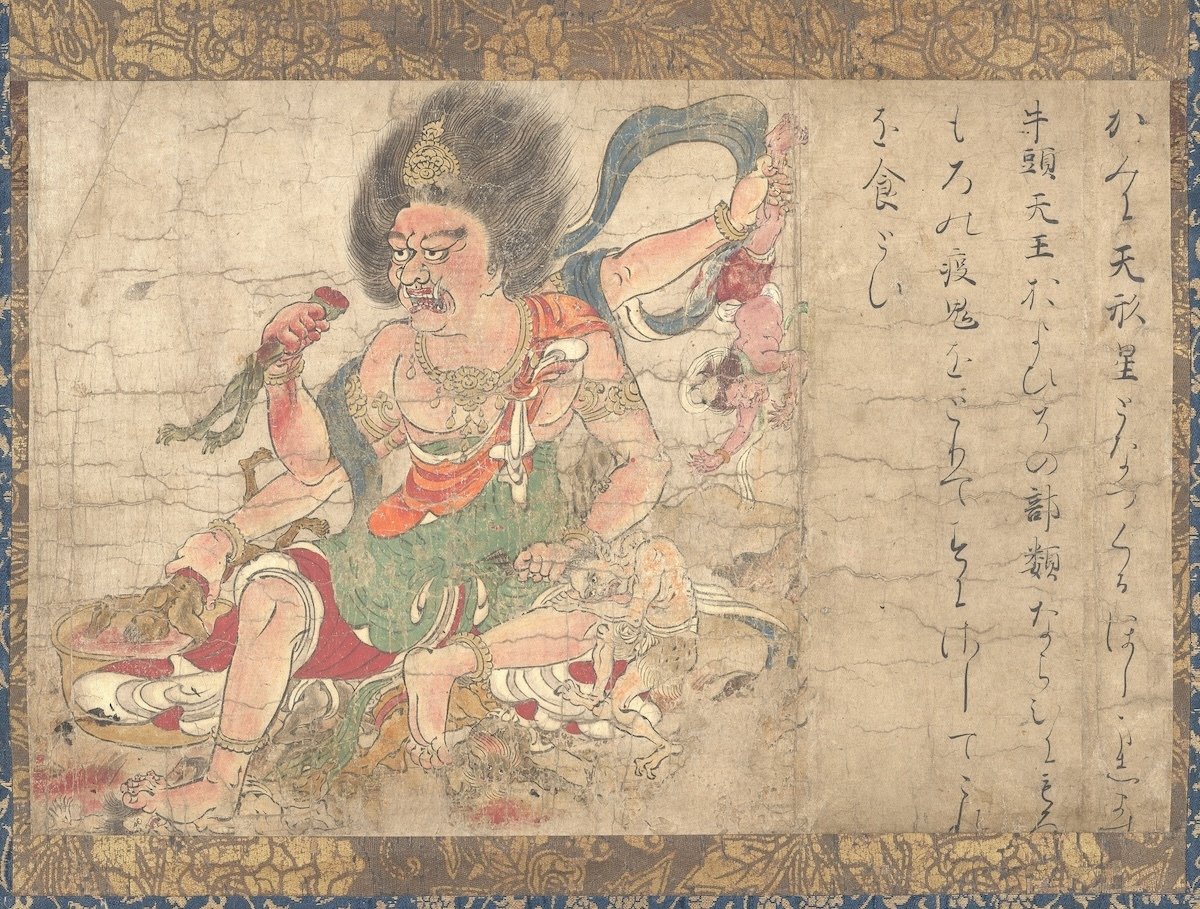 かみに天形星となつくるほし
牛頭天王およひその部類ならひにもろ
もろの疫鬼をとりてすにさしてこれ
を食と